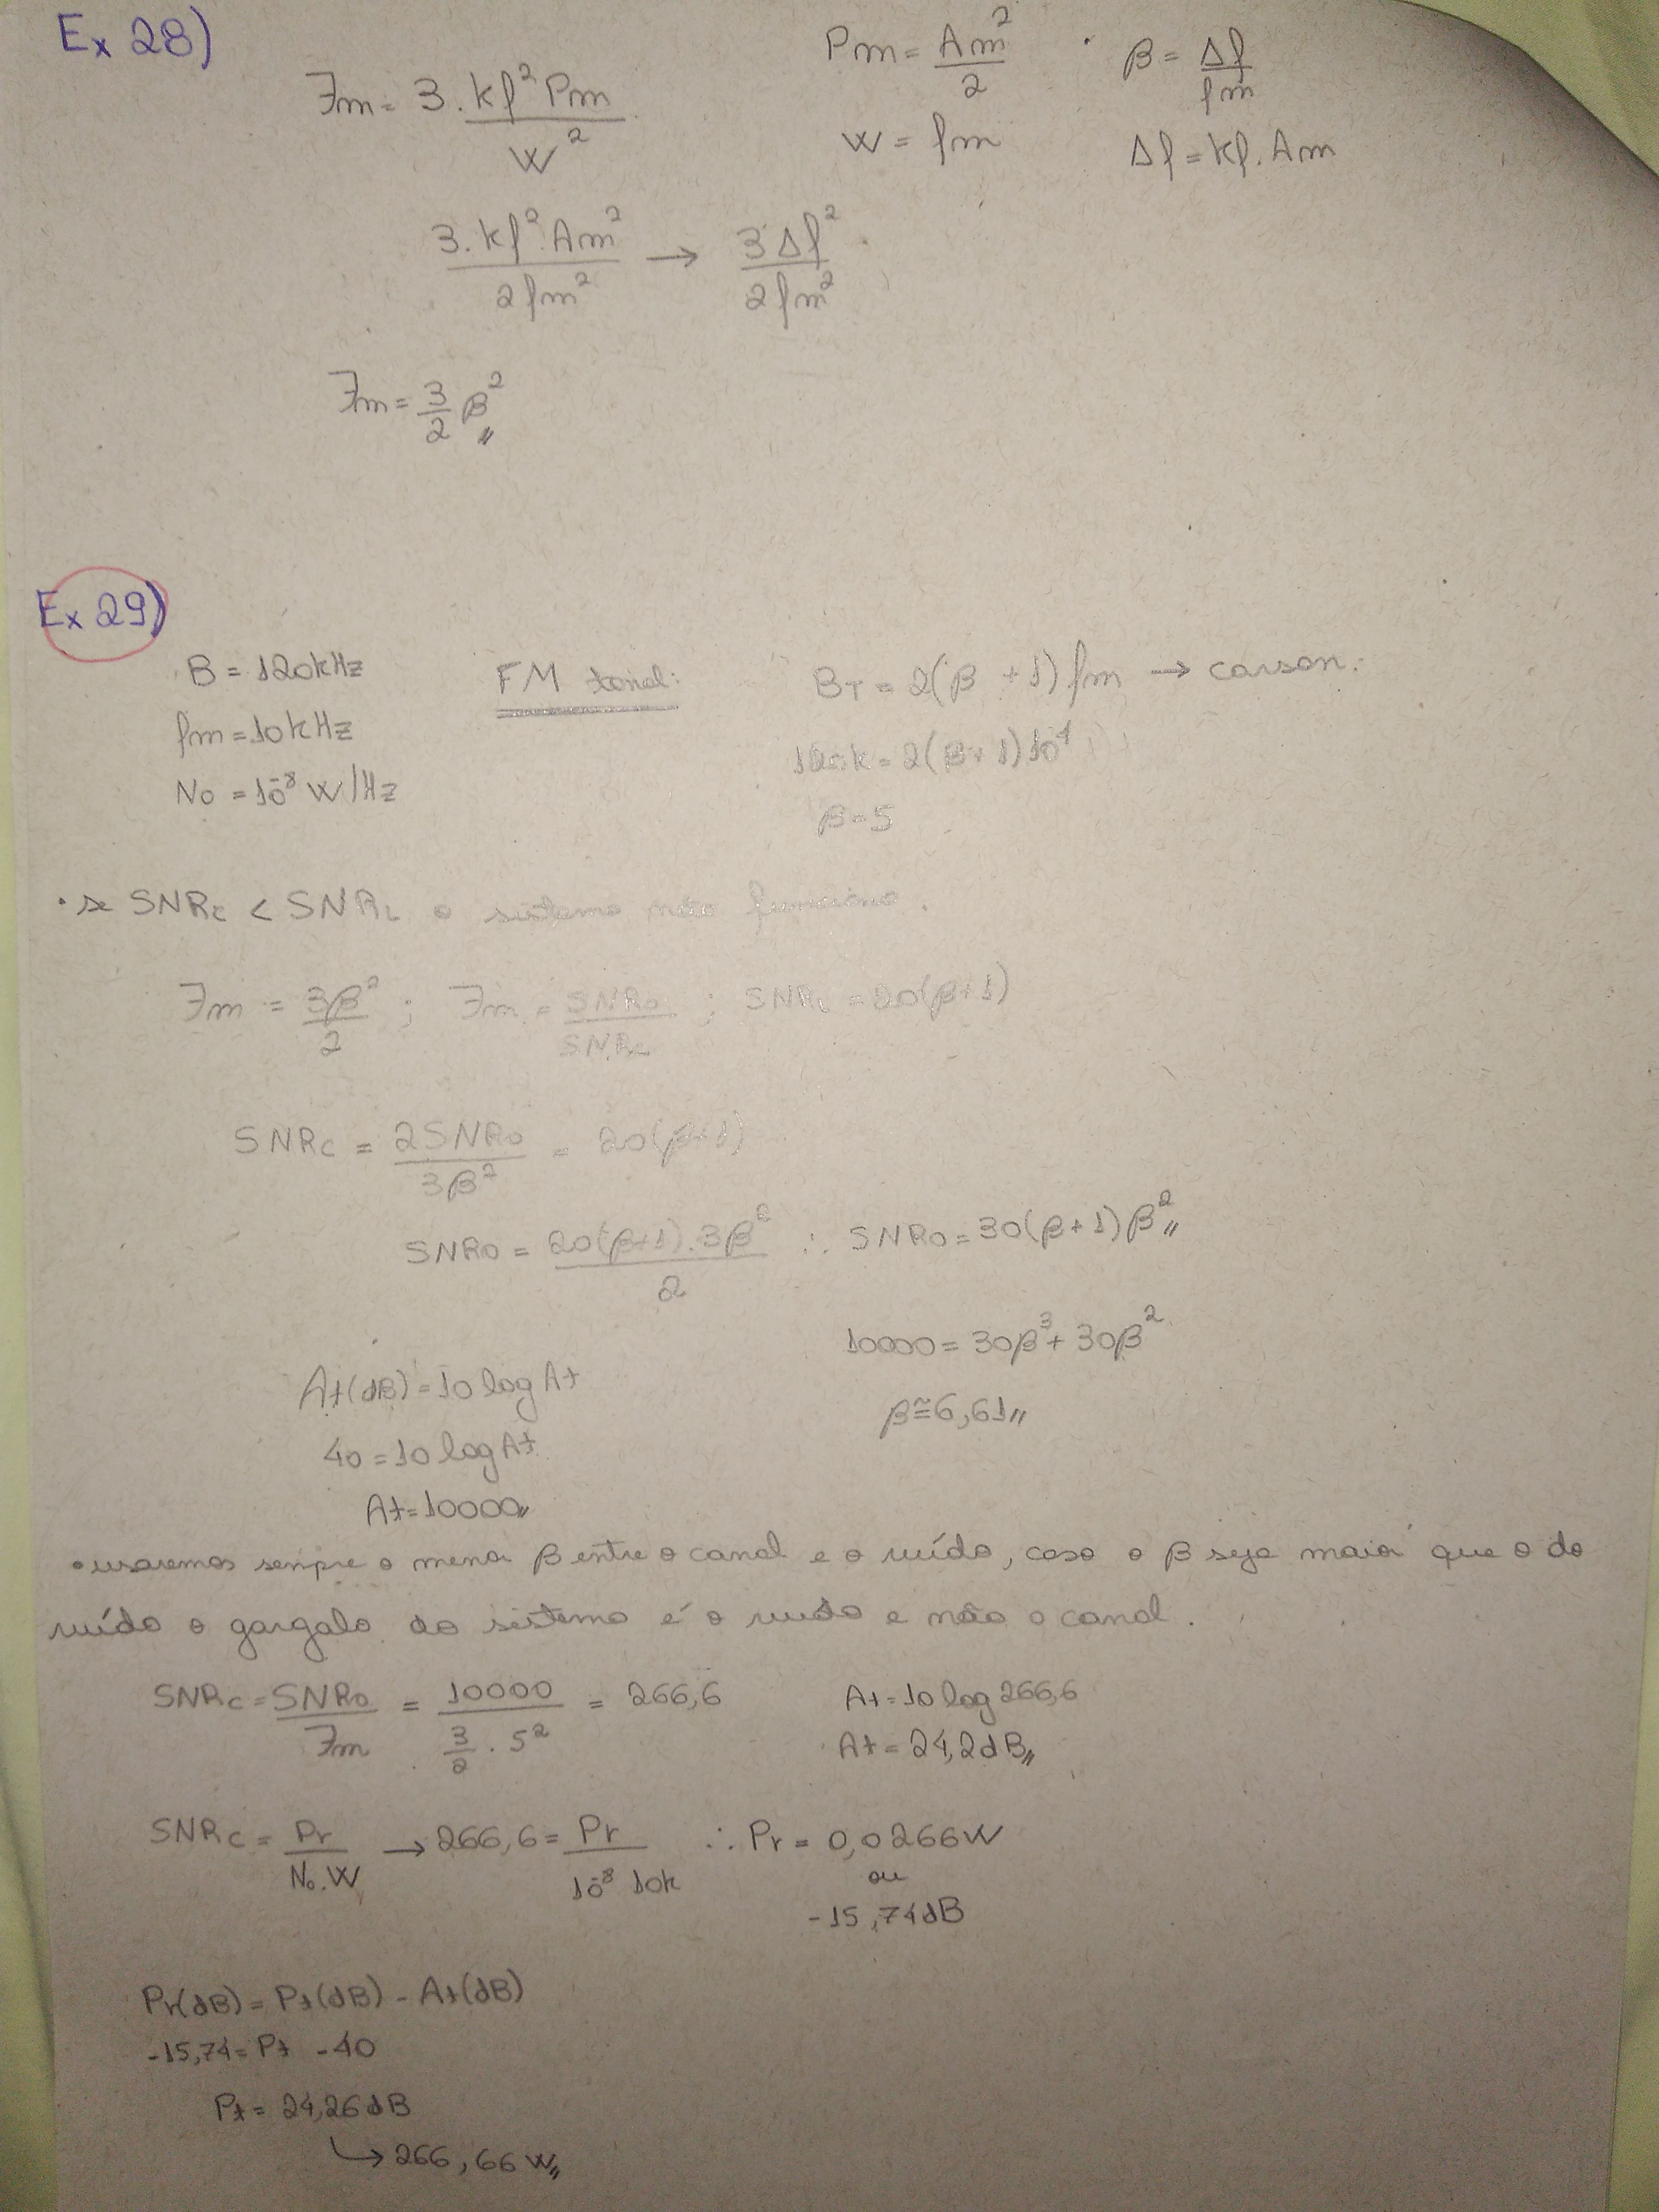 Ex 28)
Fm = 3.kf² Pm / W²
Pm = Am² / 2 · β = Δf / fm
W = fm
Δf = kf. Am
3.kf².Am² / 2fm² → 3Δf² / 2fm²
Fm = 3/2 β² //
Ex 29)
B = 120kHz
FM tonal:
BT = 2(β + 1) fm → carson.
fm = 10kHz
120k = 2(β + 1) 10⁴
No = 10⁻⁸ W/Hz
β = 5
• se SNRc < SNRL o sistema não funciona.
Fm = 3β² / 2 ; Fm = SNRo / SNRc ; SNRL = 20(β+1)
SNRc = 2SNRo / 3β² = 20(β+1)
SNRo = 20(β+1).3β² / 2 ∴ SNRo = 30(β+1) β² //
10000 = 30β³ + 30β²
At(dB) = 10 log At
β ≅ 6,61 //
40 = 10 log At
At = 10000 //
• usaremos sempre o menor β entre o canal e o ruído, caso o β seja maior que o do
ruído o gargalo do sistema é o ruído e não o canal.
SNRc = SNRo / Fm = 10000 / 3/2 . 5² = 266,6
At = 10 log 266,6
At = 24,2dB //
SNRc = Pr / No.W → 266,6 = Pr / 10⁻⁸ 10k ∴ Pr = 0,0266W
ou
-15,74dB
Pr(dB) = Pt(dB) - At(dB)
-15,74 = Pt - 40
Pt = 24,26dB
↳ 266,66 W //